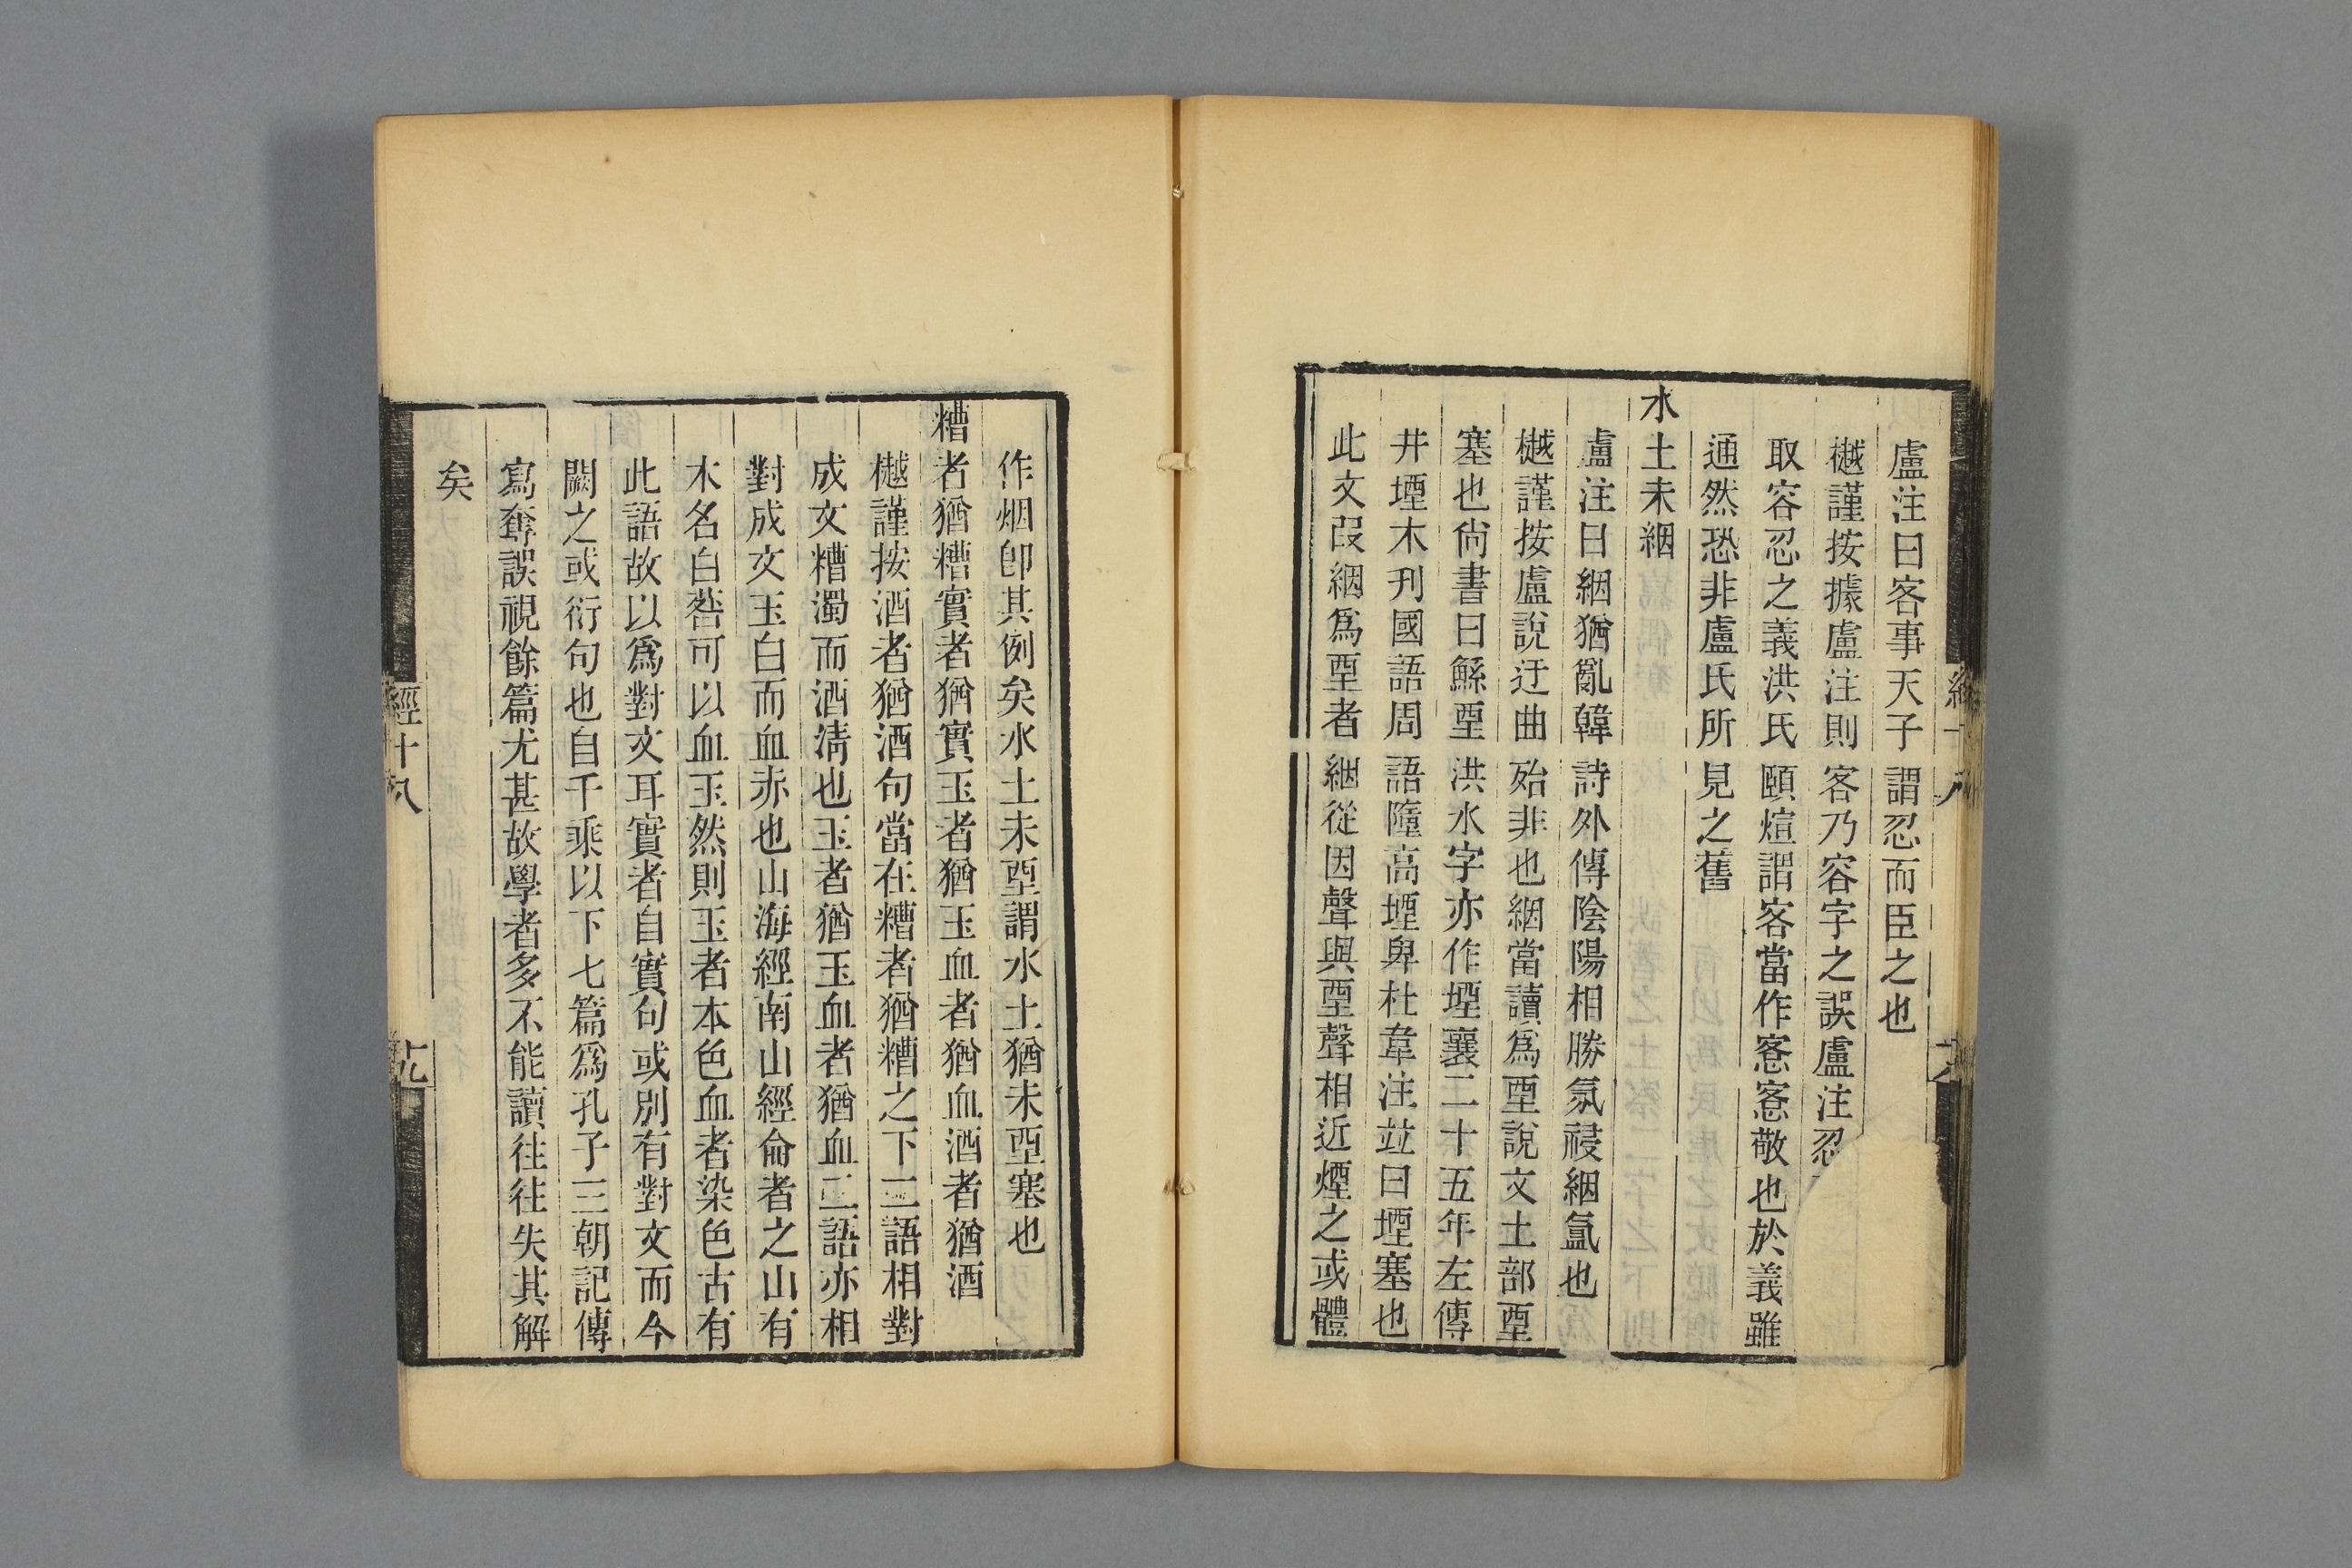 盧注曰客事天子謂忍而臣之也
樾謹按據盧注則客乃容字之誤盧注忍
取容忍之義洪氏頤煊謂客當作愙愙敬也於義雖
通然恐非盧氏所見之舊
水土未絪
盧注曰絪猶亂韓詩外傳陰陽相勝氛祲絪氳也
樾謹按盧說迂曲殆非也絪當讀爲垔說文土部垔
塞也尙書曰鯀垔洪水字亦作堙襄二十五年左傳
井堙木刊國語周語隨高堙卑杜韋注竝曰堙塞也
此文叚絪爲垔者絪從因聲與垔聲相近煙之或體
經十八
作烟卽其例矣水土未垔謂水土猶未垔塞也
糟者猶糟實者猶實玉者猶玉血者猶血酒者猶酒
樾謹按酒者猶酒句當在糟者猶糟之下二語相對
成文糟濁而酒淸也玉者猶玉血者猶血二語亦相
對成文玉白而血赤也山海經南山經侖者之山有
木名白䓘可以血玉然則玉者本色血者染色古有
此語故以爲對文耳實者自實句或別有對文而今
闕之或衍句也自千乘以下七篇爲孔子三朝記傳
寫奪誤視餘篇尤甚故學者多不能讀往往失其解
矣
經十八
十九